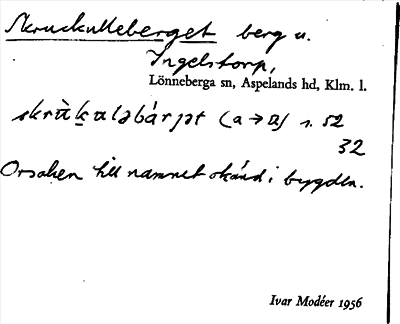 Skruckulleberget berg u.
Ingelstorp,
Lönneberga sn, Aspelands hd, Klm. l.
skrùkuləbárjət (a→ɑ) s. 52
32
Orsaken till namnet okänd i bygden.
Ivar Modéer 1956